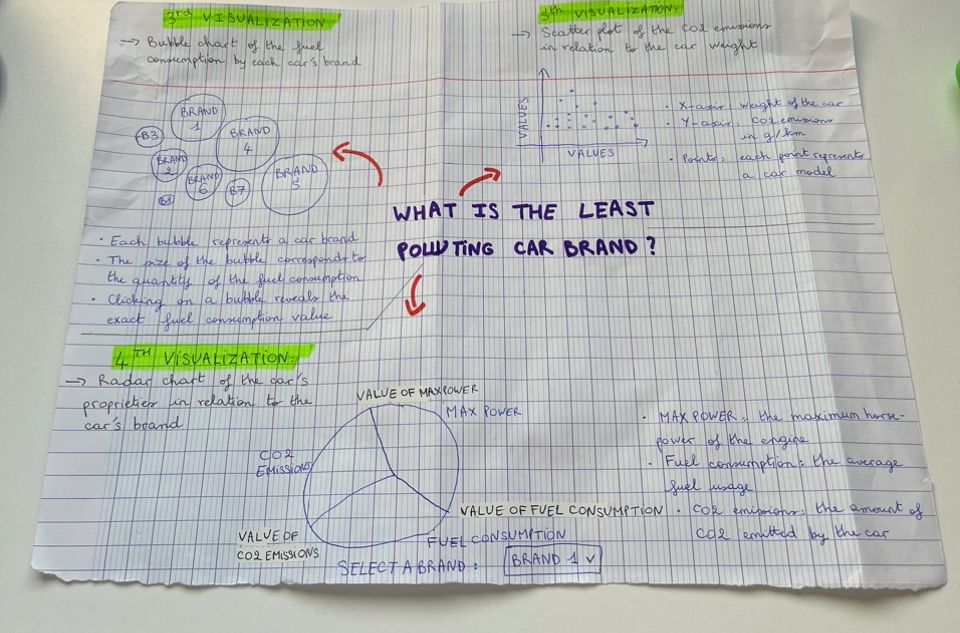 3rd VISUALIZATION
→ Bubble chart of the fuel
consumption by each car's brand
BRAND
1
B3
BRAND
4
BRAND
2
BRAND
6
B7
BRAND
5
B8
• Each bubble represents a car brand
• The size of the bubble corresponds to
the quantity of the fuel consumption
• Clicking on a bubble reveals the
exact fuel consumption value
5th VISUALIZATION:
→ Scatter plot of the CO2 emissions
in relation to the car weight
VALUES
VALUES
• X-axis: weight of the car
• Y-axis: CO2 emissions
in g/km
• Points: each point represents
a car model
WHAT IS THE LEAST
POLLUTING CAR BRAND?
4TH VISUALIZATION:
→ Radar chart of the car's
proprieties in relation to the
car's brand
VALUE OF MAXPOWER
MAX POWER
CO2
EMISSIONS
VALUE OF FUEL CONSUMPTION
VALUE OF
CO2 EMISSIONS
FUEL CONSUMPTION
SELECT A BRAND: BRAND 1 v
• MAX POWER: the maximum horse-
power of the engine
• Fuel consumption: the average
fuel usage
• CO2 emissions: the amount of
CO2 emitted by the car